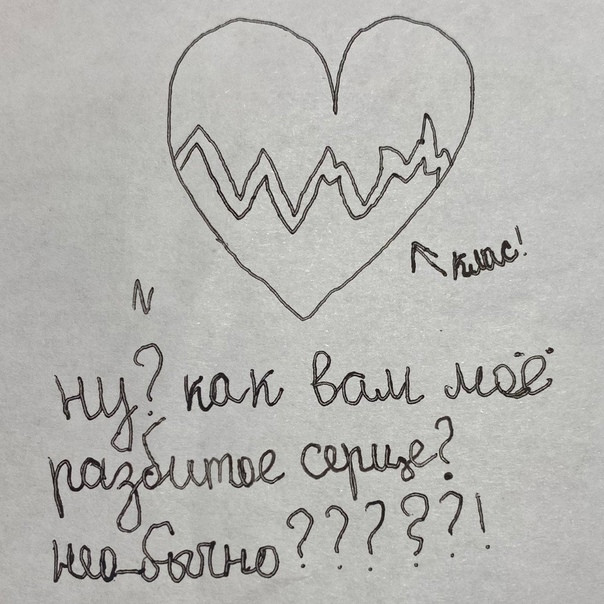 клас!
N
ну? как вам моё
разбитое серце?
необычно?????!